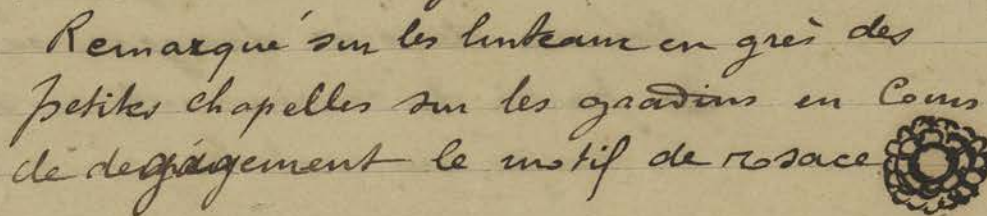 Remarqué sur les linteaux en grès des
petites chapelles sur les gradins en Cours
de degagement le motif de rosace